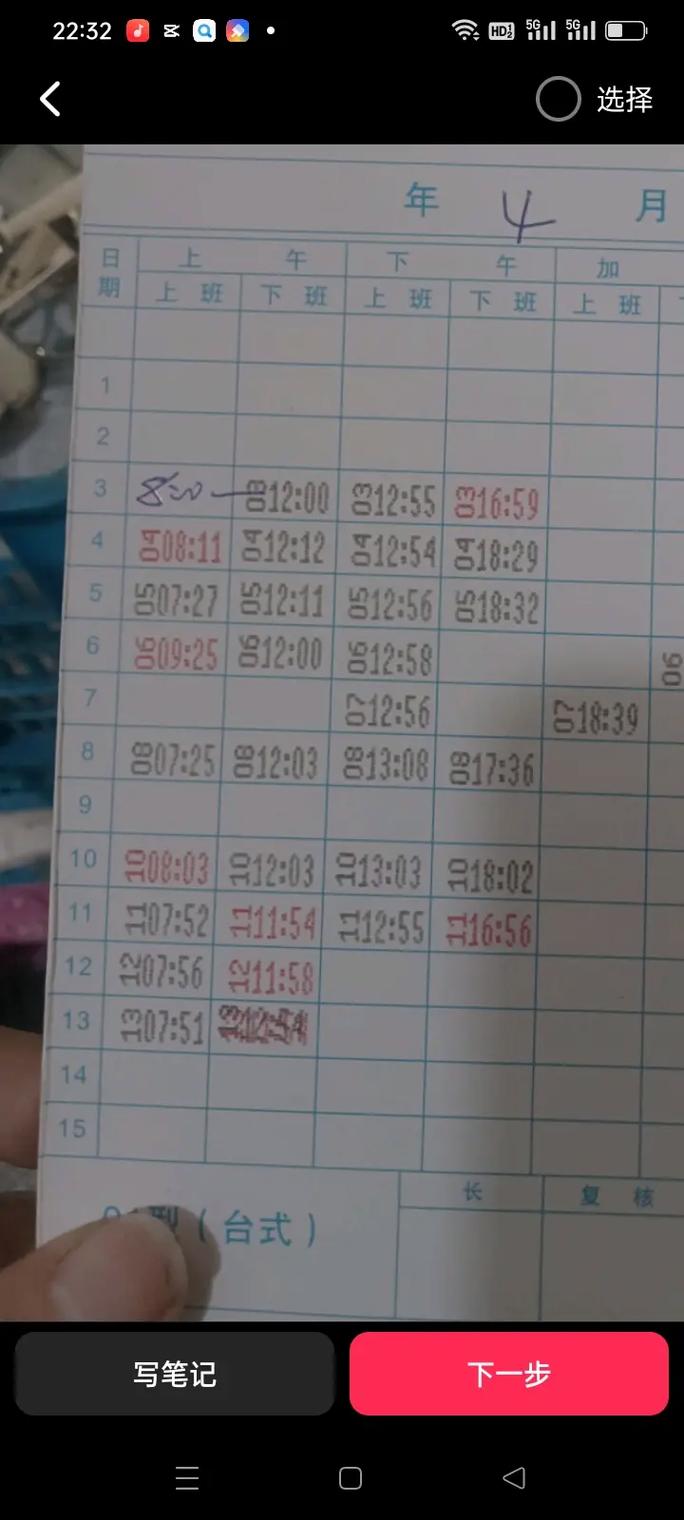 22:32 HD 5G 5G
选择
年 4 月
日期 上 午 下 午 加
上 班 下 班 上 班 下 班 上 班
1
2
3 8:00 03 12:00 03 12:55 03 16:59
4 04 08:11 04 12:12 04 12:54 04 18:29
5 05 07:27 05 12:11 05 12:56 05 18:32
6 06 09:25 06 12:00 06 12:58 06
7 07 12:56 07 18:39
8 08 07:25 08 12:03 08 13:08 08 17:36
9
10 10 08:03 10 12:03 10 13:03 10 18:02
11 11 07:52 11 11:54 11 12:55 11 16:56
12 12 07:56 12 11:58
13 13 07:51 13
14
15
型(台式)
长 复 核
写笔记 下一步